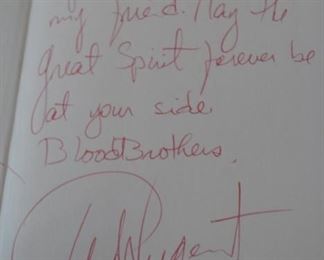 my friend. May the
great Spirit forever be
at your side
BloodBrothers.